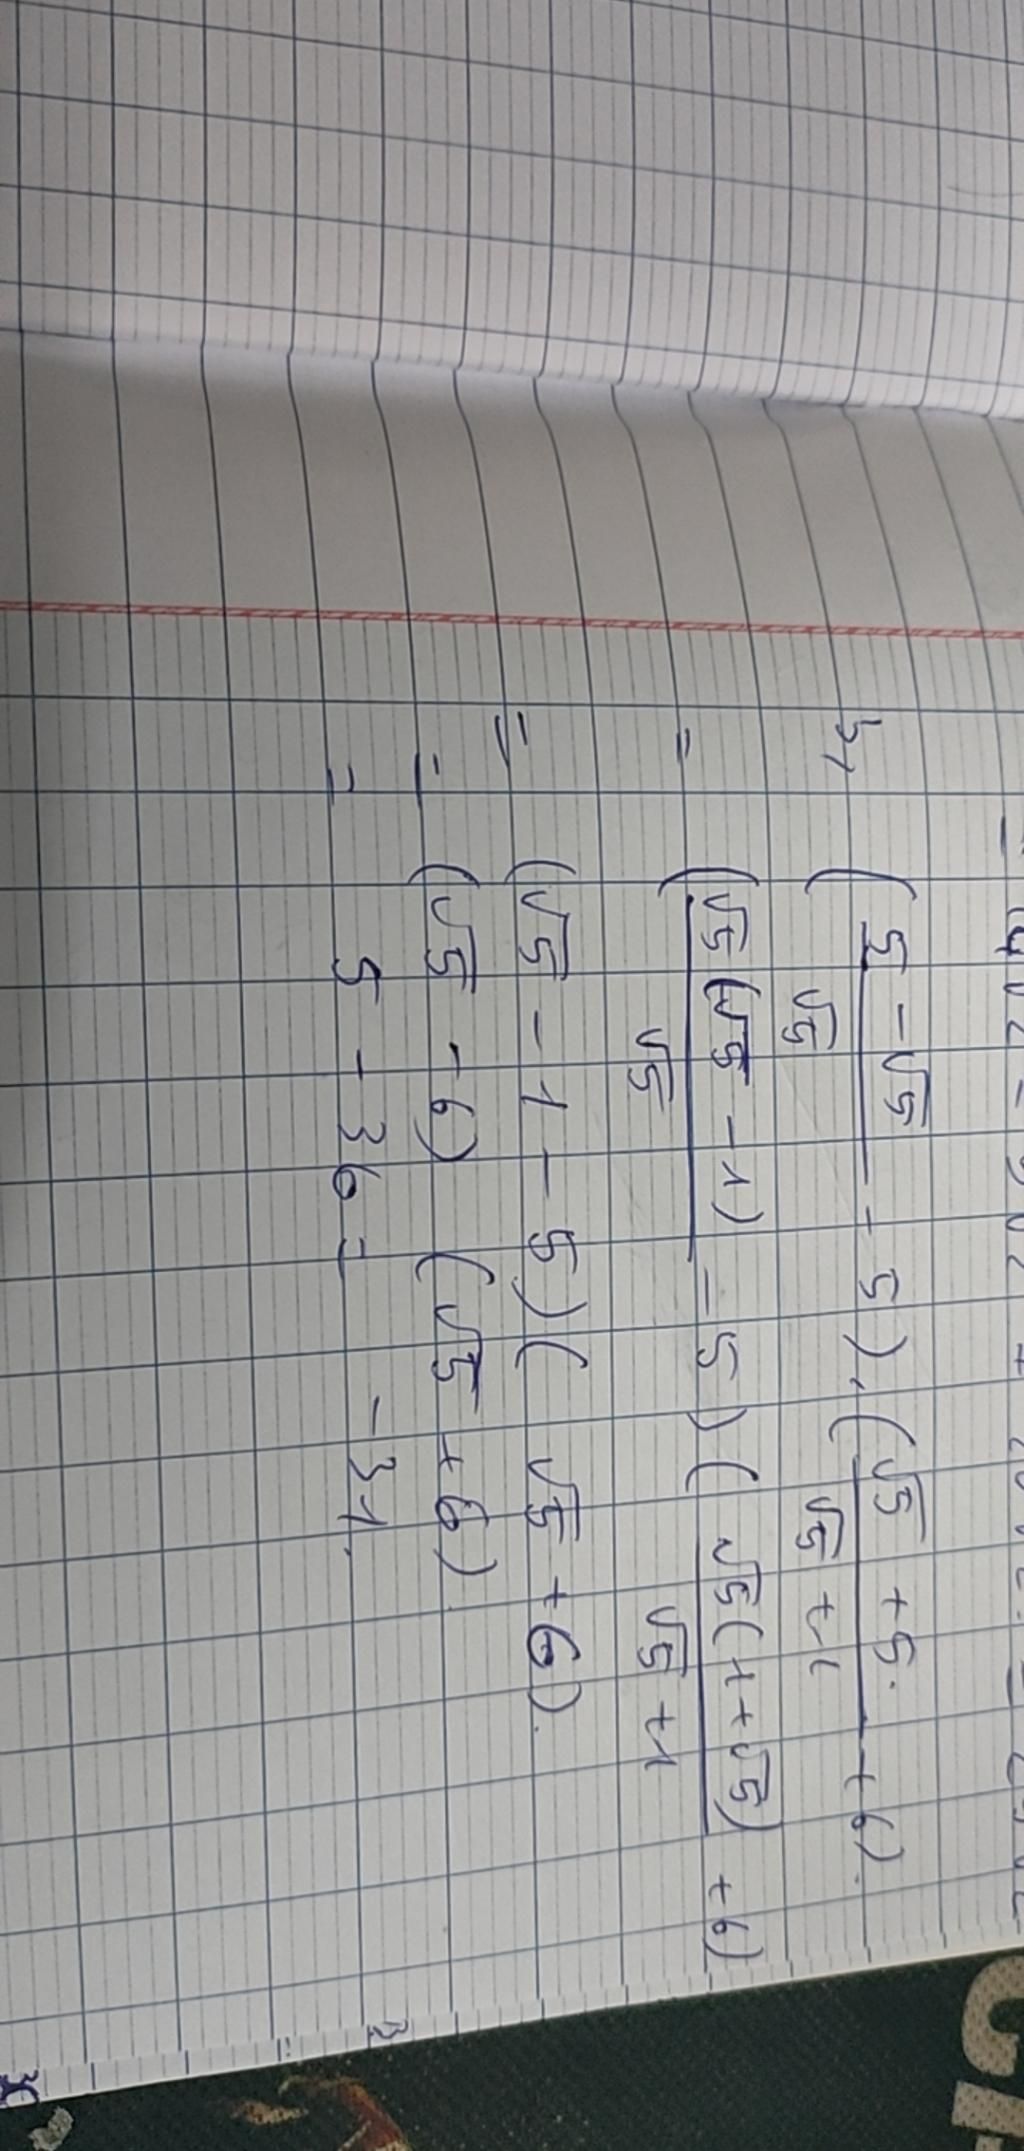 b, ( (5 - √5)/√5 - 5) . ( (√5 + 5)/(√5 + 1) + 6).
= ( √5(√5 - 1)/√5 - 5) ( √5(1+√5)/(√5 + 1) + 6)
= (√5 - 1 - 5) ( √5 + 6).
= (√5 - 6) (√5 + 6).
= 5 - 36 = -31.